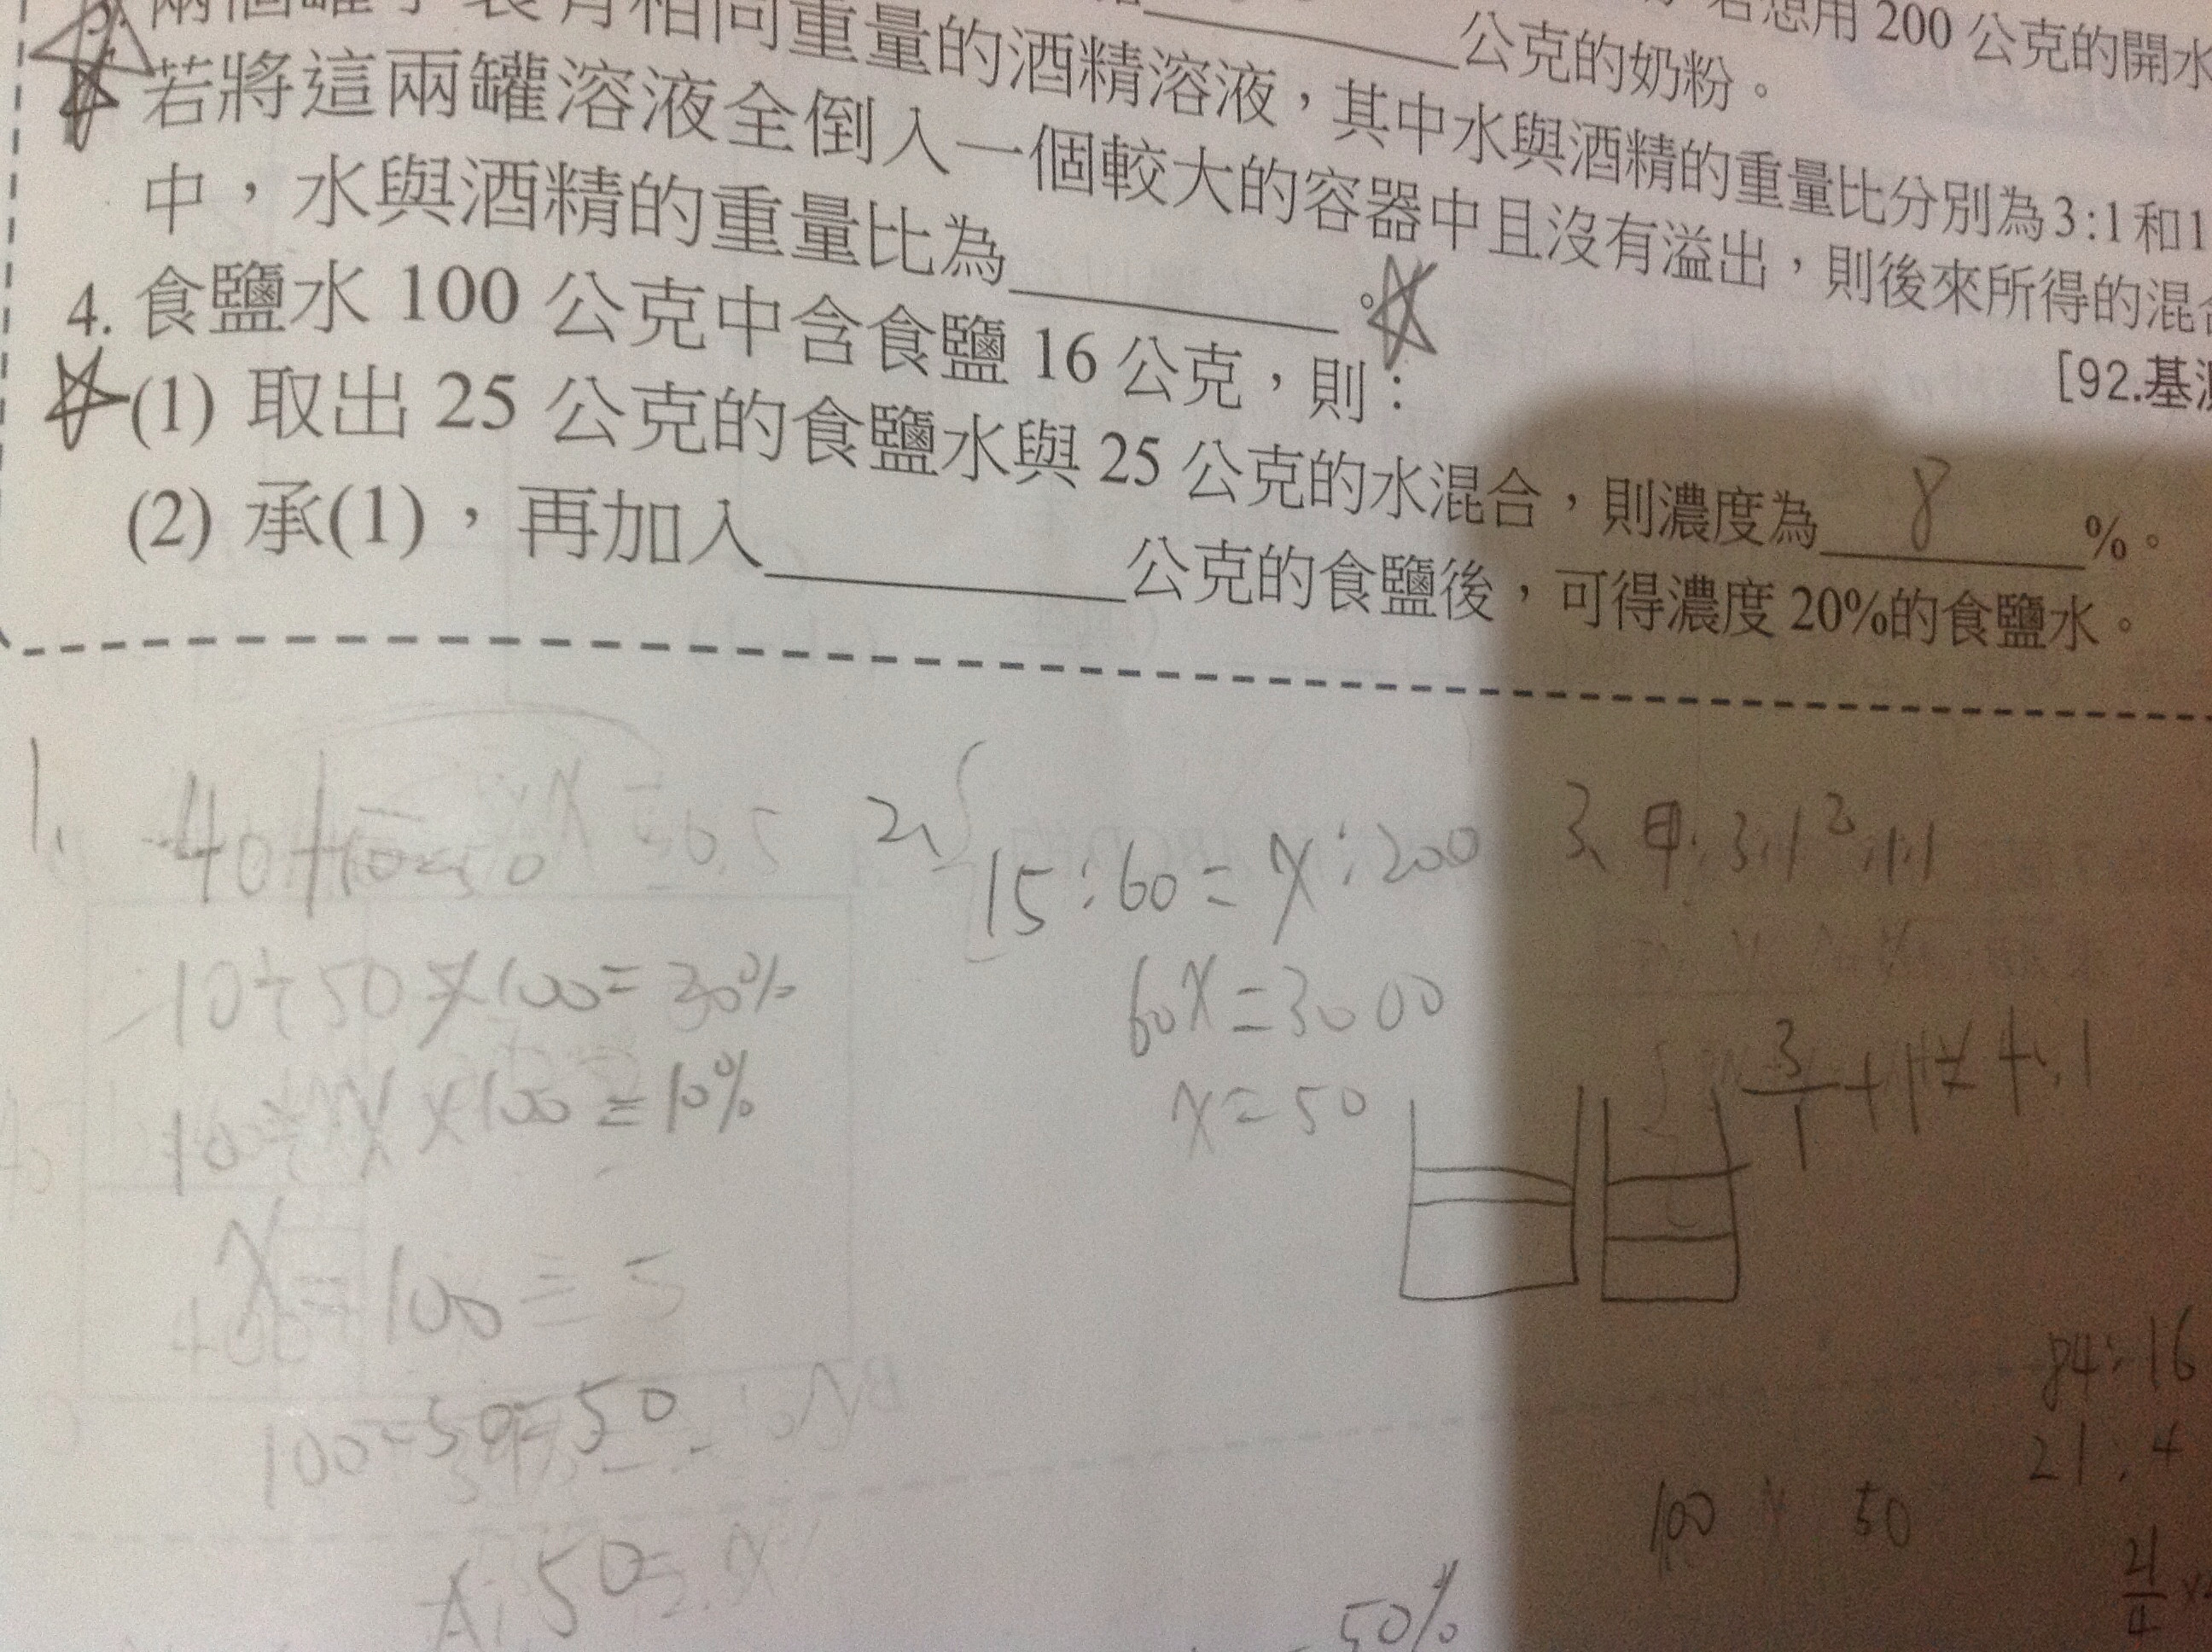 若想用 200 公克的開水
公克的奶粉。
兩個罐子裝有相同重量的酒精溶液，其中水與酒精的重量比分別為3:1和1
若將這兩罐溶液全倒入一個較大的容器中且沒有溢出，則後來所得的混合
中，水與酒精的重量比為 。
[92.基測
4. 食鹽水 100 公克中含食鹽 16 公克，則：
(1) 取出 25 公克的食鹽水與 25 公克的水混合，則濃度為 8 %。
(2) 承(1)，再加入 公克的食鹽後，可得濃度 20%的食鹽水。
1.
40+10=50
10÷50×100=20%
10÷X×100=10%
X=100
100-50=50
A:50
2、
15:60=X:200
60X=3000
X=50
3、甲:3:1 1:1
84:16
21:4
100 50
50%